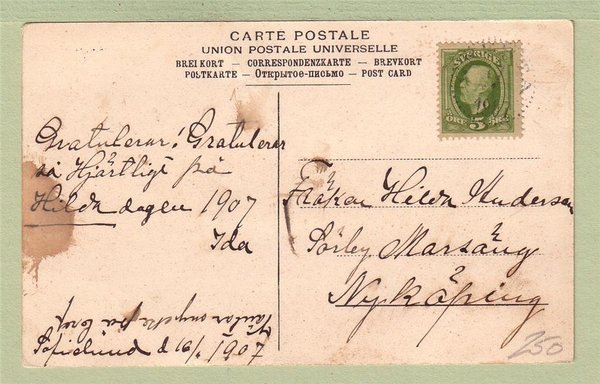 CARTE POSTALE
UNION POSTALE UNIVERSELLE
BREFKORT — CORRESPONDENZKARTE — BREVKORT
POSTKARTE — Открытое-письмо — POST CARD
SVERIGE
ÖRE 5 ÖRE
Gratulerar! Gratulerar
så Hjärtligt på
Hilda dagen 1907
Ida
Väntar mycket på bref
Sofielund d 16/1 1907
Fröken Hilda Anderson
Sörby Marsäng
Nyköping
250